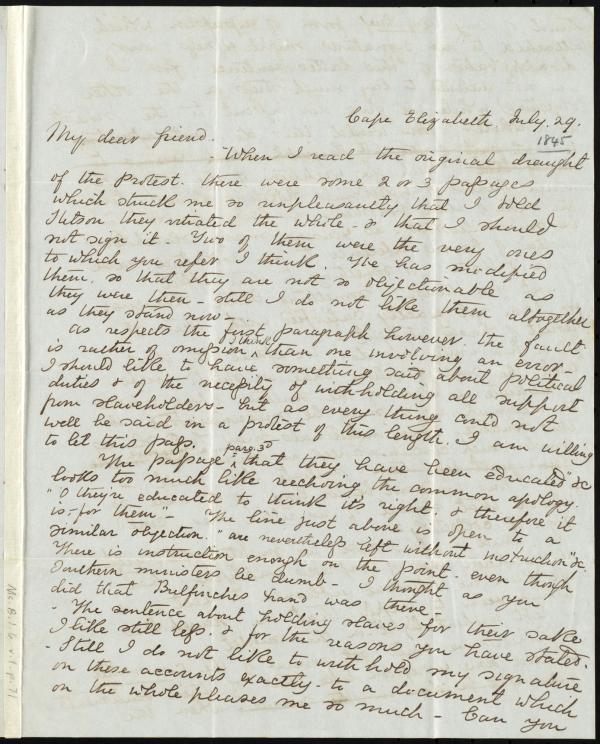 Cape Elizabeth, July. 29.
1845
My dear friend.
When I read the original draught
of the Protest. there were some 2 or 3 passages
which struck me so unpleasantly that I told
Stetson they vitiated the whole - & that I should
not sign it - Two of them were the very ones
to which you refer I think. He has modified
them, so that they are not so objectionable as
they were then - still I do not like them altogether
as they stand now -
as respects the first paragraph however, the fault
is rather of omission I think than one involving an error -
I should like to have something said about political
duties & of the necessity of withholding all support
from slaveholders - but as every thing could not
well be said in a protest of this length. I am willing
to let this pass.
The passage parag. 3d "that they have been educated" &c
looks too much like reechoing the common apology.
"O they're educated to think it's right, & therefore it
is - for them" - The line just above is open to a
similar objection. "are nevertheless left without instruction" &c.
There is instruction enough on the point - even though
Southern ministers be dumb - I thought as you
did that Bulfinches hand was there -
- The sentence about holding slaves for their sake
I like still less. & for the reasons you have stated.
- Still I do not like to withhold my signature
on these accounts exactly - to a document which
on the whole pleases me so much - Can you
Ms. B. 1. 6 v. 1. p. 71